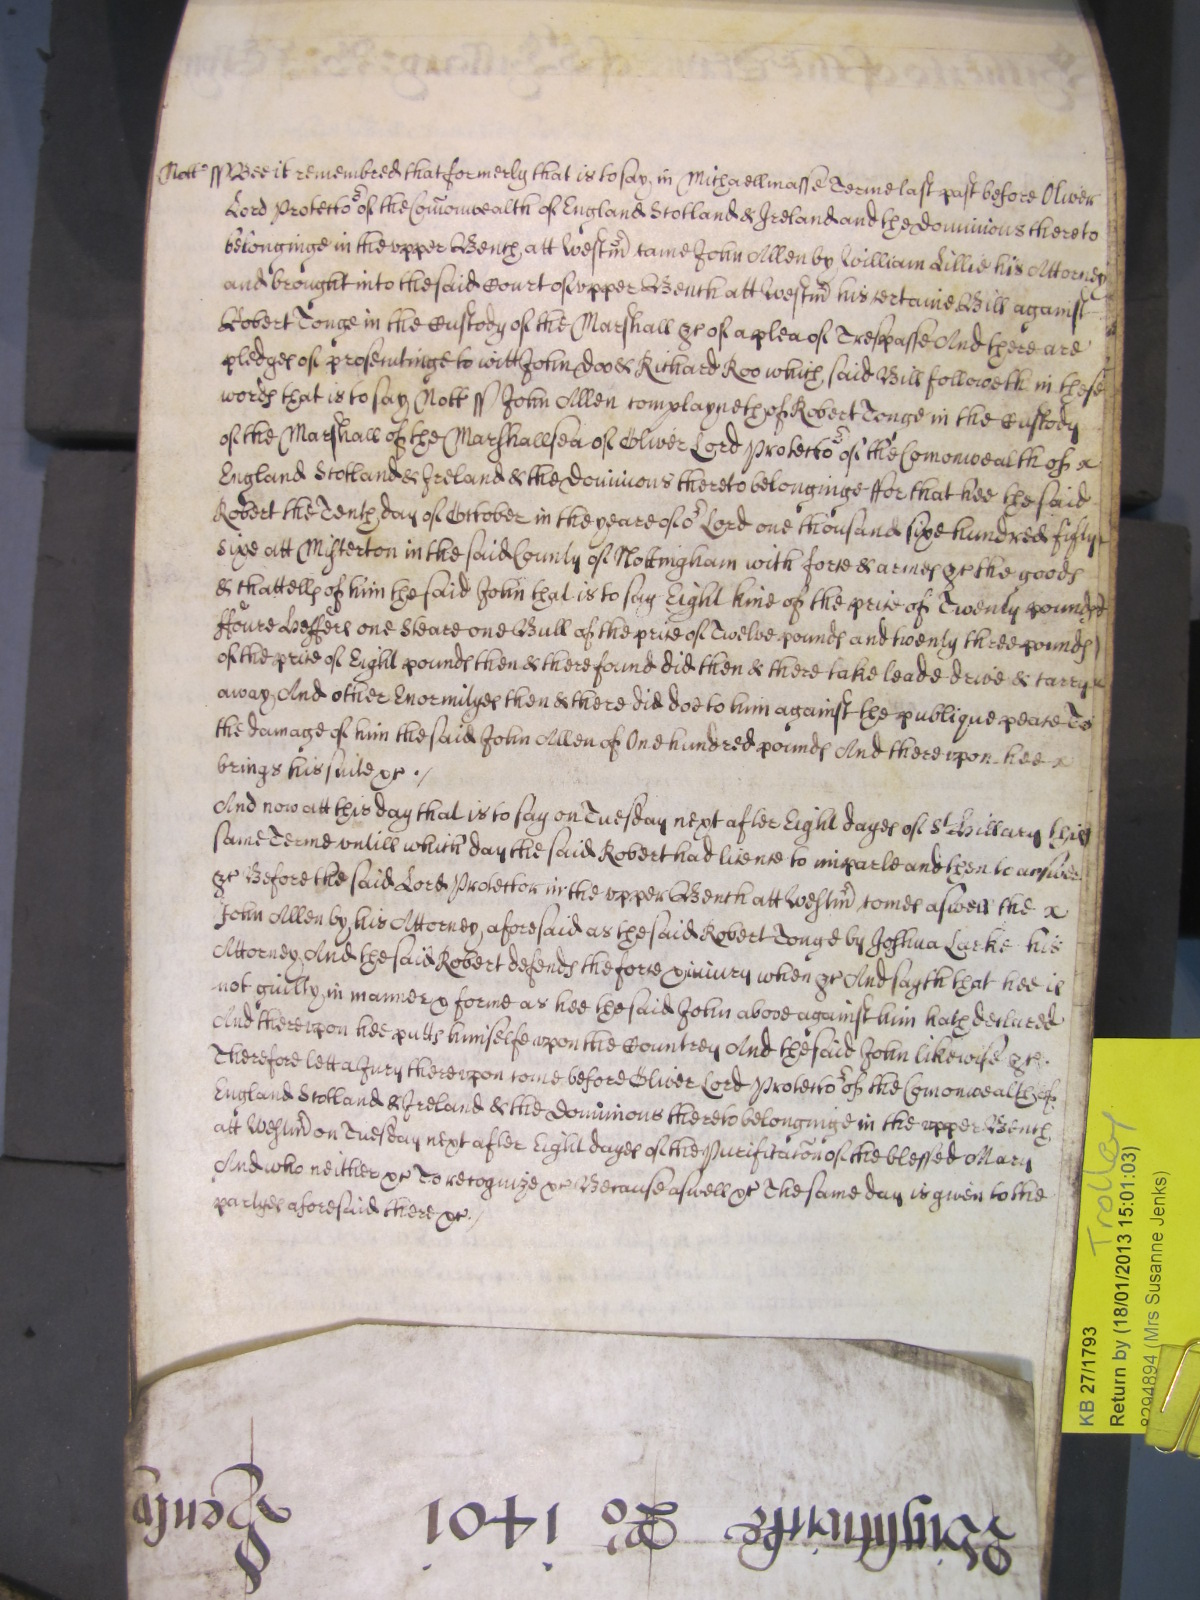 Nott ss Bee it remembred that formerly that is to say in Michaellmasse Terme last past before Oliver
Lord Protector of the Comonwealth of England Scotland & Ireland and the Dominions thereto
belonginge in the upper Bench att Westmr came John Allen by William Lillie his Attorney
and brought into the said Court of upper Bench att Westmr his certaine Bill against
Robert Tonge in the Custody of the Marshall &c of a plea of Trespasse And there are
pledges of prosecutinge to witt John Doo & Richard Roo which said Bill followeth in these
words that is to say Nott ss John Allen complayneth of Robert Tonge in the Custody
of the Marshall of the Marshallsea of Oliver Lord Protector of the Comonwealth of x
England Scotland & Ireland & the Dominions thereto belonginge ffor that hee the said
Robert the Tenth day of October in the yeare of or Lord one thousand sixe hundred fifty
sixe att Misterton in the said County of Nottingham with force & armes &c the goods
& chattells of him the said John that is to say Eight kine of the price of Twenty pounds
ffoure Heffers one Steare one Bull of the price of Twelve pounds and twenty three pounds
of the price of Eight pounds then & there found did then & there take leade drive & carry
away And other Enormityes then & there did doe to him against the publique peace To
the damage of him the said John Allen of One hundred pounds And thereupon hee x
brings his suite &c ./
And now att this day that is to say on Tuesday next after Eight dayes of St Hillary this
same Terme untill which day the said Robert had licence to imparle and then to answer
&c Before the said Lord Protector in the upper Bench att Westmr comes aswell the x
John Allen by his Attorney aforesaid as the said Robert Tonge by Joshua Larke his
Attorney And the said Robert defends the force & iniury when &c And sayth that hee is
not guilty in manner & forme as hee the said John above against him hath declared
And thereupon hee putts himselfe upon the Countrey And the said John likewise &c.
Therefore lett a Jury thereupon come before Oliver Lord Protector of the Comonwealth of
England Scotland & Ireland & the Dominions thereto belonginge in the upper Bench
att Westmr on Tuesday next after Eight dayes of the Purificacon of the blessed Mary
And who neither &c To recognize &c Because aswell &c The same day is given to the
partyes aforesaid there &c ./
KB 27/1793 Trolley
Return by (18/01/2013 15:01:03)
8294894 (Mrs Susanne Jenks)
Ro 1401